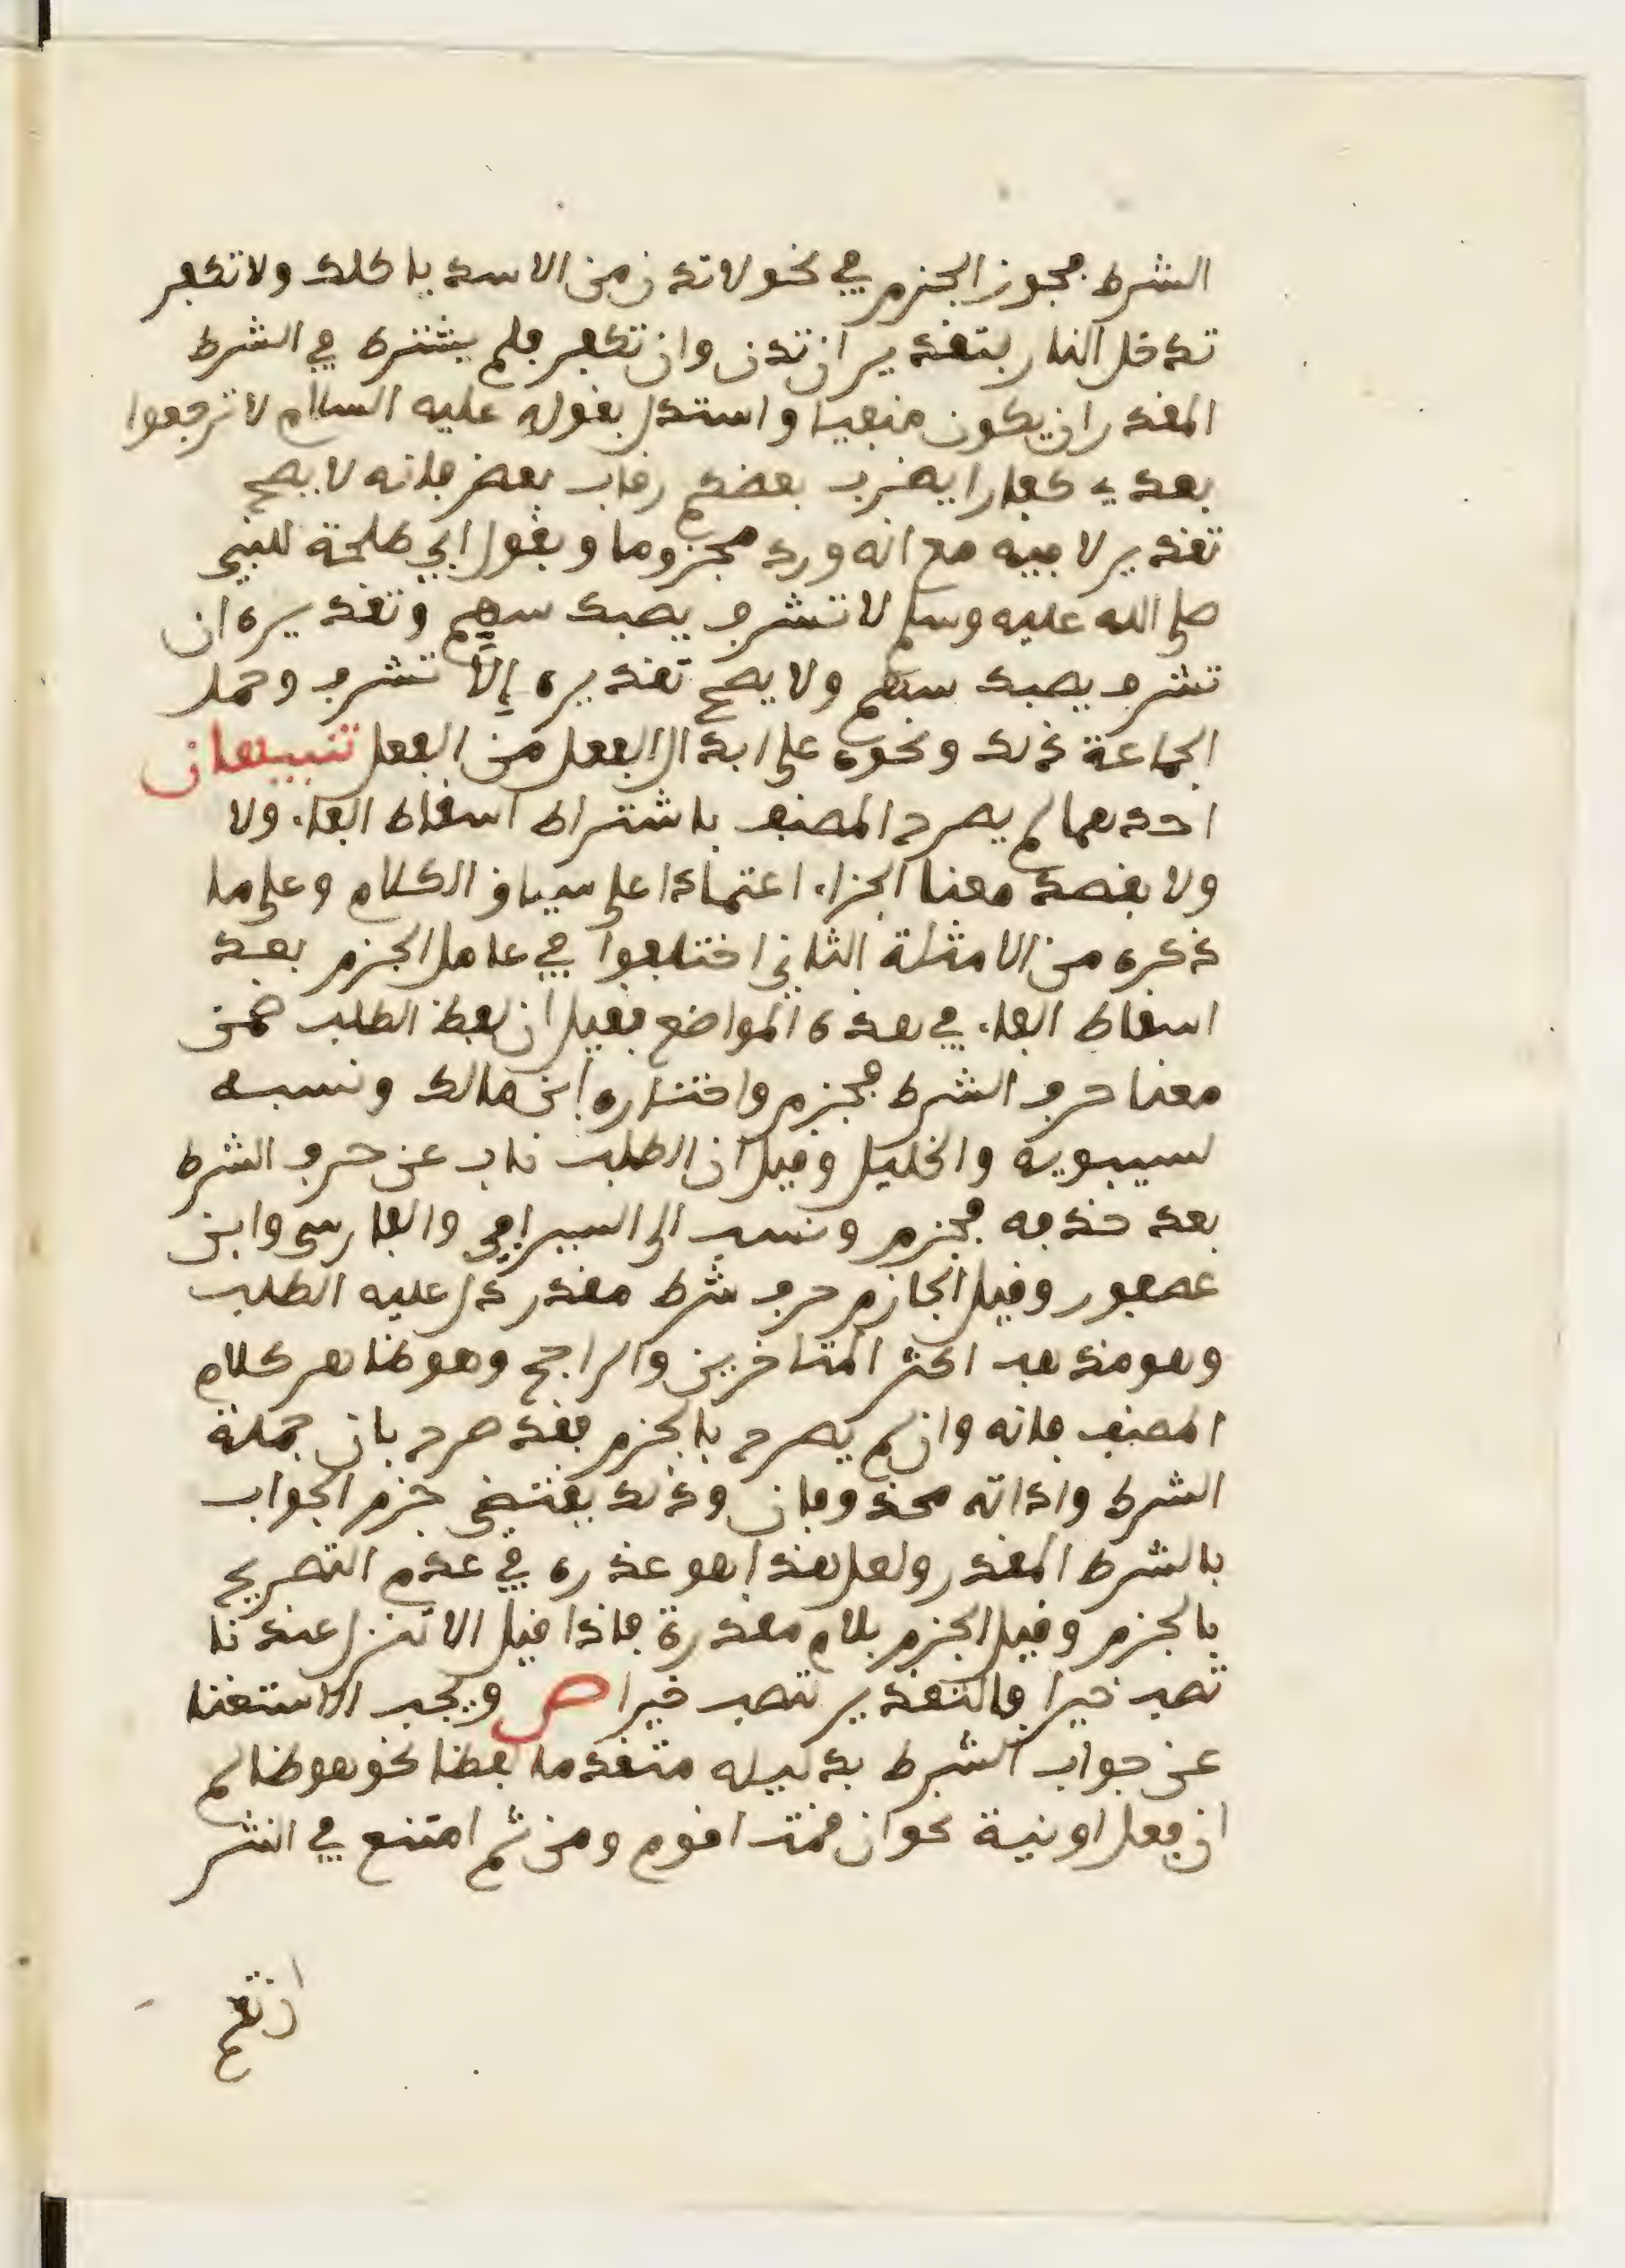 الشرط فجوز الجزم في نحو لا تدن من الاسد ياكلك ولا تكفر
تدخل النار بتقدير ان تدن وان تكفر فلم يشترط في الشرط
المقدر ان يكون منفيا واستدل بقوله عليه السلام لا ترجعوا
بعدي كفارا يضرب بعضكم رقاب بعض فانه لا يصح
تقدير لا فيه مع انه ورد مجزوما وبقول ابي طلحة للنبي
صلى الله عليه وسلم لا تشرف يصبك سهم وتقديره ان
تشرف يصبك سهم ولا يصح تقديره إلا تشرف وحمل
الجماعة ذلك ونحوه على ابدال الفعل من الفعل تنبيهان
احدهما لم يصرح المصنف باشتراط اسقاط الفاء ولا
ولا بقصد معنا الجزاء اعتمادا على سياق الكلام وعلى ما
ذكره من الامثلة الثاني اختلفوا في عامل الجزم بعد
اسقاط الفاء في هذه المواضع فقيل ان لفظ الطلب ضمن
معنا حرف الشرط فجزم واختاره ابن مالك ونسبه
لسيبويه والخليل وقيل ان الطلب ناب عن حرف الشرط
بعد حذفه فجزم ونسب الى السيرافي والفارسي وابن
عصفور وقيل الجازم حرف شرط مقدر دل عليه الطلب
وهو مذهب اكثر المتاخرين والراجح وهو ظاهر كلام
المصنف فانه وان لم يصرح بالجزم فقد صرح بان جملة
الشرط واداته محذوفان وذلك يقتضي جزم الجواب
بالشرط المقدر ولعل هذا هو عذره في عدم التصريح
بالجزم وقيل الجزم بلام مقدرة فاذا قيل الا تنزل عندنا
تصب خيرا فالتقدير لتصب خيرا ص ويجب الاستغنا
عن جواب الشرط بدليله متقدما لفظا نحو هو ظالم
ان فعل او نية نحو ان قمت اقوم ومن ثم امتنع في النثر
ان تقم